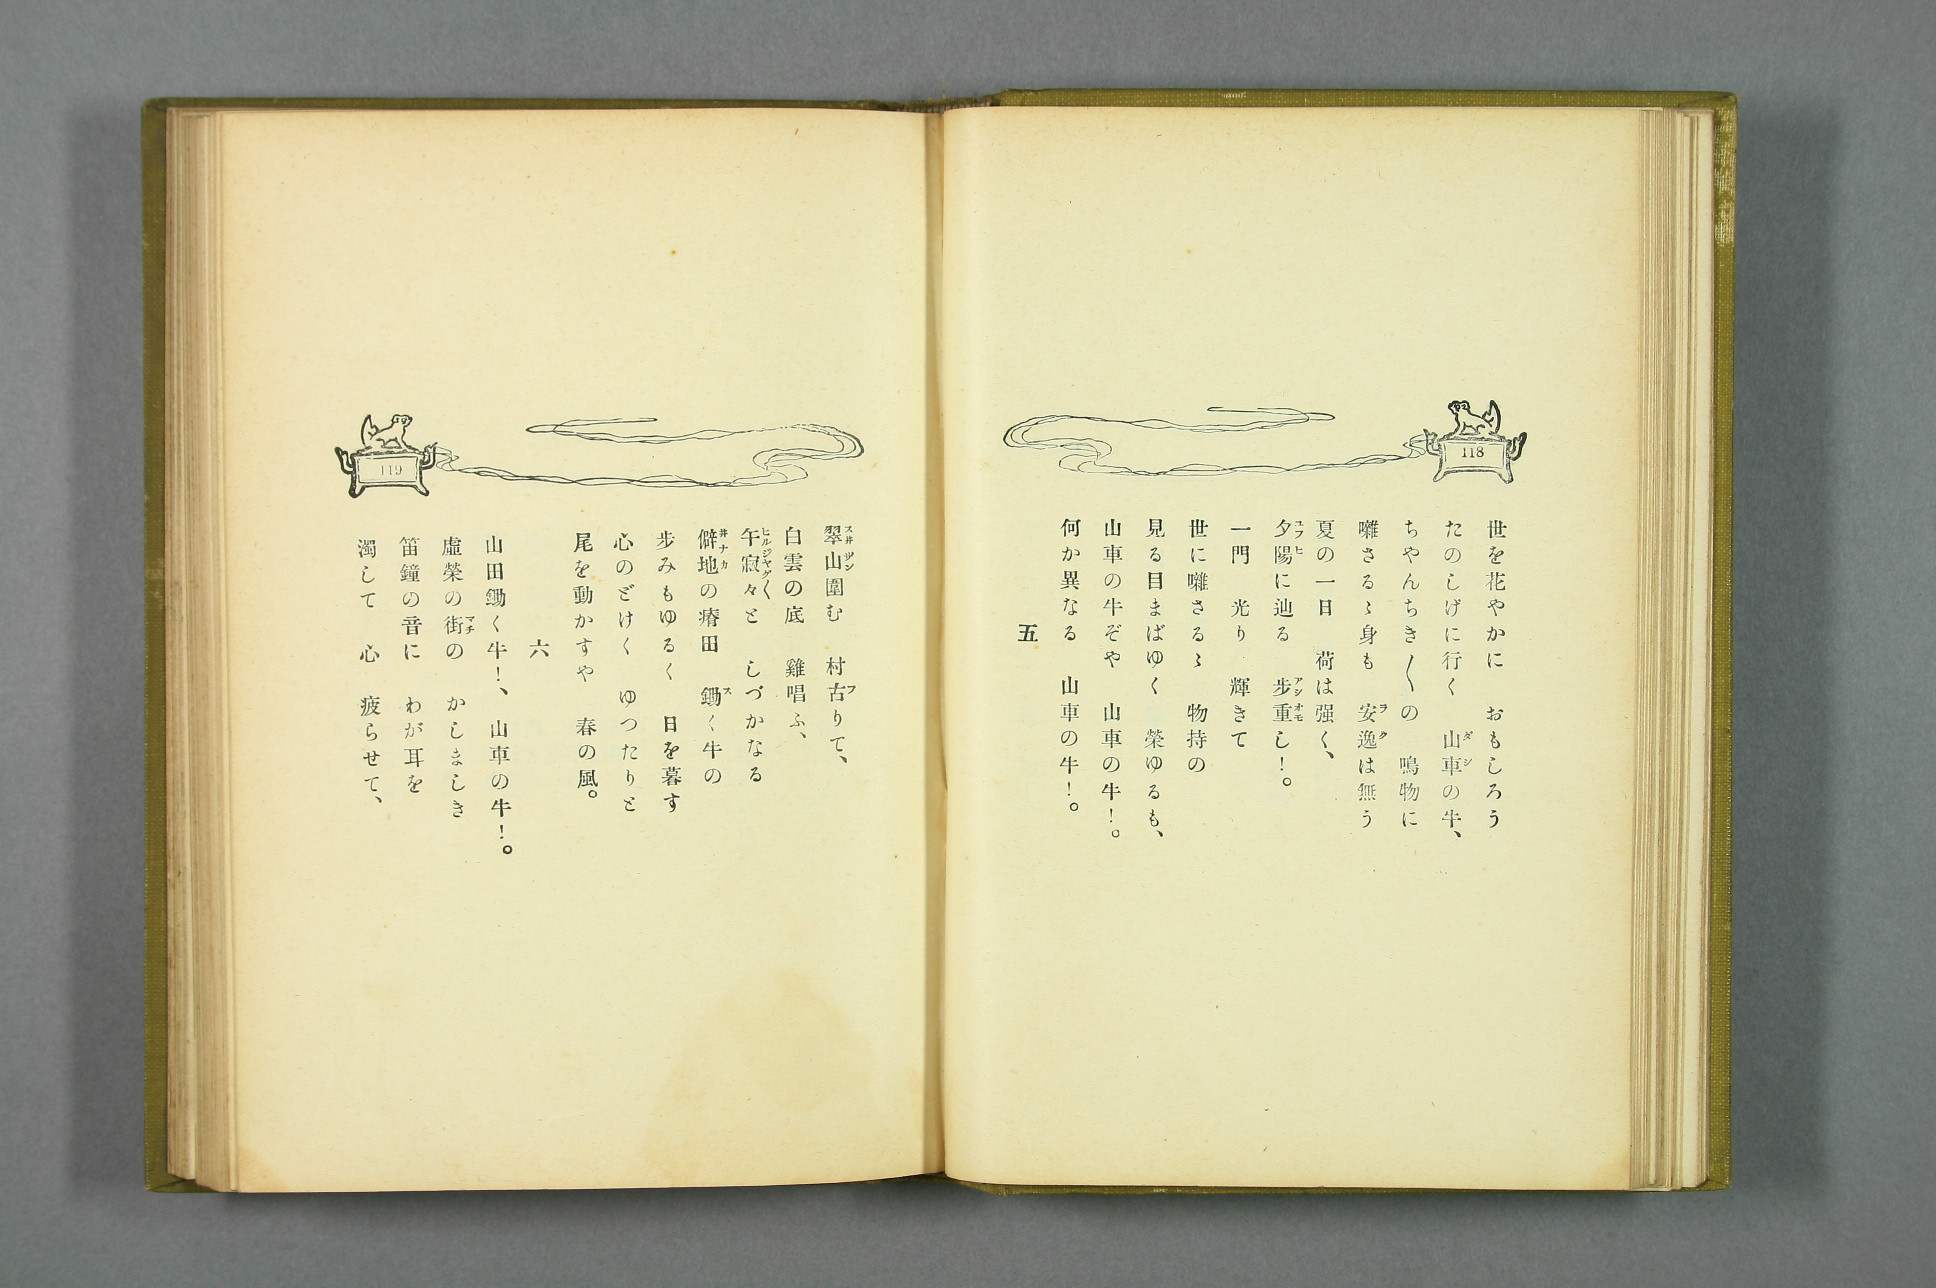 118
世を花やかに　おもしろう
たのしげに行く　山車の牛、
ちやんちき〳〵の　鳴物に
囃さるゝ身も　安逸は無う
夏の一日　荷は强く、
夕陽に辿る　步重し！。
一門　光り　輝きて
世に囃さるゝ　物持の
見る目まばゆく　榮ゆるも、
山車の牛ぞや　山車の牛！。
何か異なる　山車の牛！。
五
119
翠山圍む　村古りて、
白雲の底　雞唱ふ、
午寂々と　しづかなる
僻地の瘠田　鋤く牛の
步みもゆるく　日を暮す
心のどけく　ゆつたりと
尾を動かすや　春の風。
六
山田鋤く牛！、山車の牛！。
虛榮の街の　かしましき
笛鐘の音に　わが耳を
濁して　心　疲らせて、